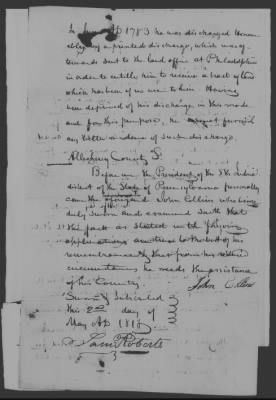 In June AD 1783 he was discharged honor-
ably by a printed discharge, which was af-
terwards sent to the land office at Philadelphia
in order to entitle him to receive a tract of land
which has been of no use to him. Having
been deprived of his discharge in this mode
and for this purpose, he cannot furnish
any better evidence of such discharge.
Allegheny County Ss.
Before me the President of the 5th Judic
district of the State of Pennsylvania personally
came the aforesaid John Collins who being
duly sworn and examined saith that
the facts as stated in the
application are true to the best of his
remembrance & that from his
circumstances he needs the assistance
of his Country
Sworn & subscribed
this 2nd day of
May AD 1818
John Collins
Saml Roberts